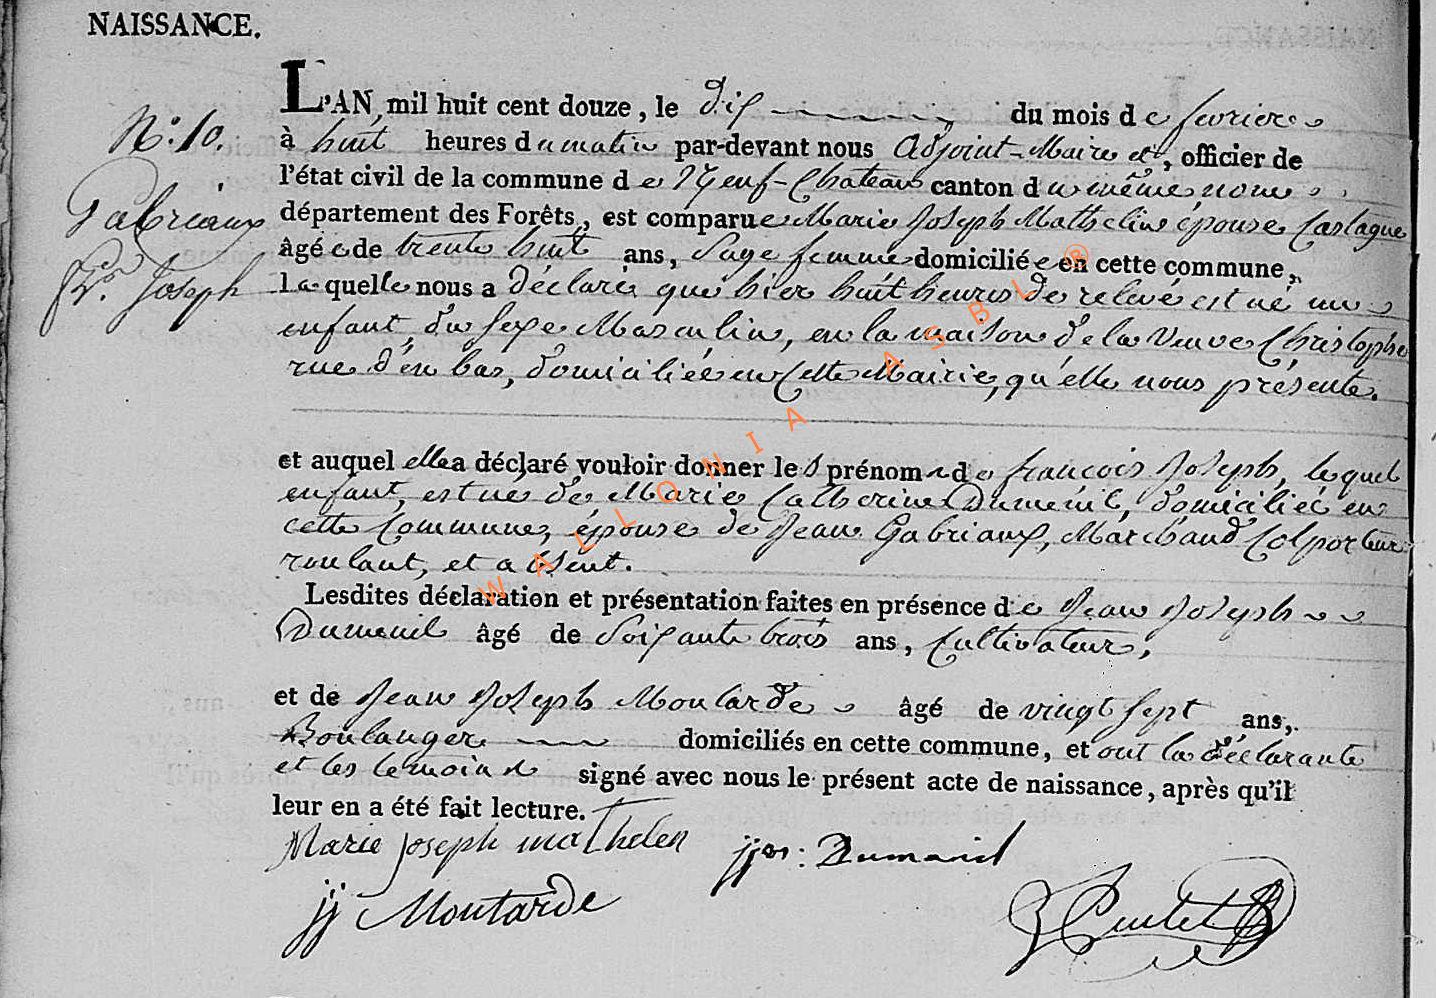 NAISSANCE.
L'AN mil huit cent douze, le dix du mois de fevrier
N.o 10. à huit heures du matin par-devant nous Adjoint-Maire et, officier de
l'état civil de la commune de Neuf-Chateau canton du même nom
Gabriaux département des Forêts, est comparue Marie Joseph Mathelin épouse Carlague
âgée de trente huit ans, Sage femme domiciliée en cette commune,
frs. Joseph Laquelle nous a déclaré que hier huit heures de relevé est né un
enfant, du sexe Masculin, en la maison de la Veuve Christophe
rue d'en bas, domiciliée en cette Mairie, qu'elle nous présente.
et auquel elle a déclaré vouloir donner les prénoms de françois Joseph, lequel
enfant, est né de Marie Catherine Dumenil, domiciliée en
cette Commune, épouse de Jean Gabriaux, Marchand Colporteur
roulant, et absent.
Lesdites déclaration et présentation faites en présence de Jean Joseph
Dumenil âgé de Soixante trois ans, Cultivateur,
et de Jean Joseph Moutarde âgé de vingt sept ans,
Boulanger domiciliés en cette commune, et ont la déclarante
et les temoins signé avec nous le présent acte de naissance, après qu'il
leur en a été fait lecture.
Marie joseph mathelen jjos: Dumenil
jj Moutarde
WALLONIA ASBL ®